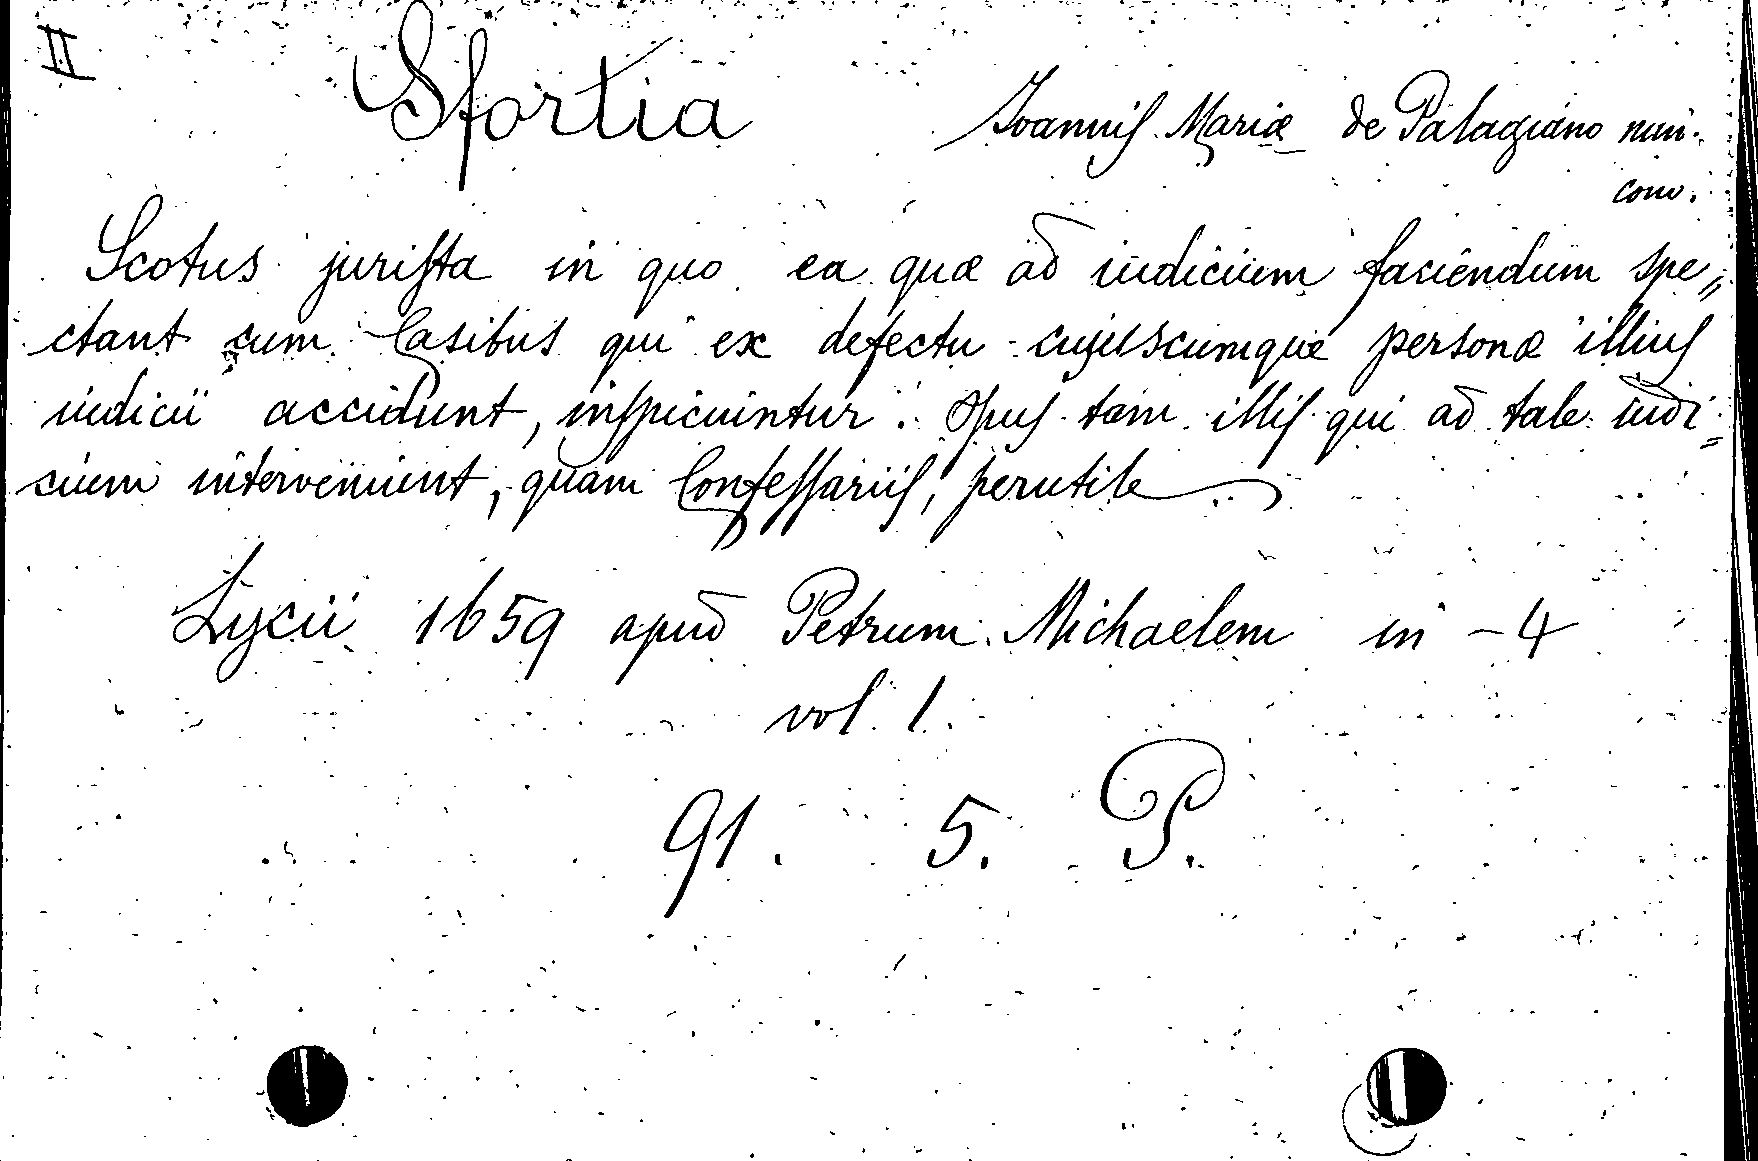 II
Sfortia Joannis Mariæ de Palagiano min.
conv.
Scotus jurista in quo ea quæ ad iudicium faciendum spe„
ctant cum Casibus qui ex defectu cujuscumque personæ illius
iudicii accidunt, inspiciuntur. Opus tam illis qui ad tale iudi=
cium interveniunt, quam Confessariis, perutile
Lycii 1659 apud Petrum Michaelem in -4
vol. 1.
91. 5. P.